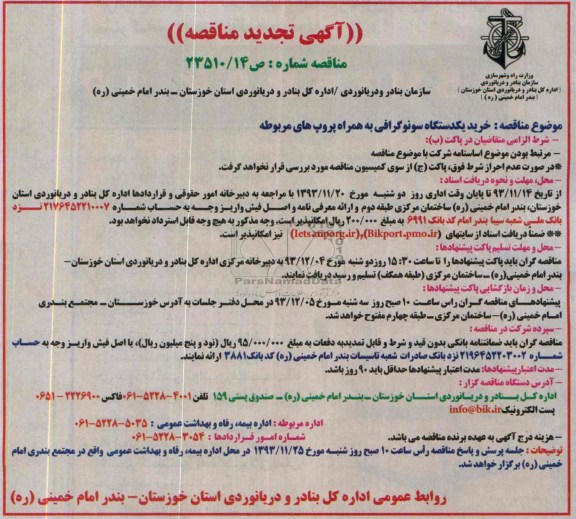 ((آگهی تجدید مناقصه))
مناقصه شماره : ص۲۳۵۱۰/۱۴
وزارت راه وشهرسازی
سازمان بنادر و دریانوردی
(اداره کل بنادر و دریانوردی استان خوزستان)
(بندر امام خمینی (ره))
سازمان بنادر ودریانوردی /اداره کل بنادر و دریانوردی استان خوزستان ــ بندر امام خمینی (ره)
موضوع مناقصه : خرید یکدستگاه سونوگرافی به همراه پروپ های مربوطه
– شرط الزامی متقاضیان در پاکت (ب):
– مرتبط بودن موضوع اساسنامه شرکت با موضوع مناقصه
*در صورت عدم احراز شرط فوق، پاکت (ج) از سوی کمیسیون مناقصه مورد بررسی قرار نخواهد گرفت.
– محل، مهلت و نحوه دریافت اسناد :
از تاریخ ۹۳/۱۱/۱۴ تا پایان وقت اداری روز دو شنبه مورخ ۱۳۹۳/۱۱/۲۰ با مراجعه به دبیرخانه امور حقوقی و قراردادها اداره کل بنادر و دریانوردی استان
خوزستان، بندر امام خمینی (ره) ساختمان مرکزی طبقه دوم و ارائه معرفی نامه و اصل فیش واریز وجه به حساب شماره ۲۱۷۶۴۵۲۲۱۰۰۷ نزد
بانک ملی شعبه سیبا بندر امام کد بانک ۶۹۹۱ به مبلغ ۲۰۰/۰۰۰ ریال امکانپذیر است. وجه مذکور به هیچ وجه قابل استرداد نخواهد بود.
** ضمنا دریافت اسناد از سایتهای (Bikport.pmo.ir),(Iets.mporg.ir) نیز امکانپذیر است
– محل و مهلت تسلیم پاکت پیشنهادها:
مناقصه گران باید پاکت پیشنهادها را تا ساعت ۱۵:۳۰ روز دو شنبه مورخ ۹۳/۱۲/۰۴ به دبیرخانه مرکزی اداره کل بنادر و دریانوردی استان خوزستان–
بندر امام خمینی(ره) ــ ساختمان مرکزی (طبقه همکف) تسلیم و رسید دریافت نمایند.
– محل و زمان بازگشایی پاکت پیشنهادها:
پیشنهادهای مناقصه گران راس ساعت ۱۰ صبح روز سه شنبه مورخ ۹۳/۱۲/۰۵ در محل دفتر جلسات به آدرس خوزستان ــ مجتمع بندری
امام خمینی (ره) – ساختمان مرکزی ــ طبقه چهارم مفتوح خواهد شد.
– سپرده شرکت در مناقصه :
مناقصه گران باید ضمانتنامه بانکی بدون قید و شرط و قابل تمدید به دفعات به مبلغ ۹۵/۰۰۰/۰۰۰ ریال (نود و پنج میلیون ریال)، یا اصل فیش واریز وجه به حساب
شماره ۲۱۹۶۴۵۲۲۰۳۰۰۲ نزد بانک صادرات شعبه تاسیسات بندر امام خمینی (ره) کد بانک ۳۸۸۱ ارائه نمایند.
– مدت اعتبار پیشنهادها: مدت اعتبار پیشنهادها حداقل باید ۹۰ روز باشد.
– آدرس دستگاه مناقصه گزار :
اداره کل بنادر و دریانوردی استان خوزستان ــ بندر امام خمینی (ره) – صندوق پستی ۱۵۹ تلفن ۴۰۰۱–۵۲۲۸–۰۶۱ فاکس ۲۲۲۶۹۰۰–۰۶۵۱
پست الکترونیک info@bik.ir
اداره مربوطه : اداره بیمه، رفاه و بهداشت عمومی : ۵۰۳۵–۵۲۲۸–۰۶۱
شماره امور قراردادها : ۳۰۵۴–۵۲۲۸–۰۶۱
– هزینه درج آگهی به عهده برنده مناقصه می باشد.
توضیحات : جلسه پرسش و پاسخ مناقصه رأس ساعت ۱۰ صبح روز شنبه مورخ ۱۳۹۳/۱۱/۲۵ در محل اداره بیمه، رفاه و بهداشت عمومی واقع در مجتمع بندری امام
خمینی (ره) برگزار خواهد شد.
روابط عمومی اداره کل بنادر و دریانوردی استان خوزستان– بندر امام خمینی (ره)
ParsNamadData